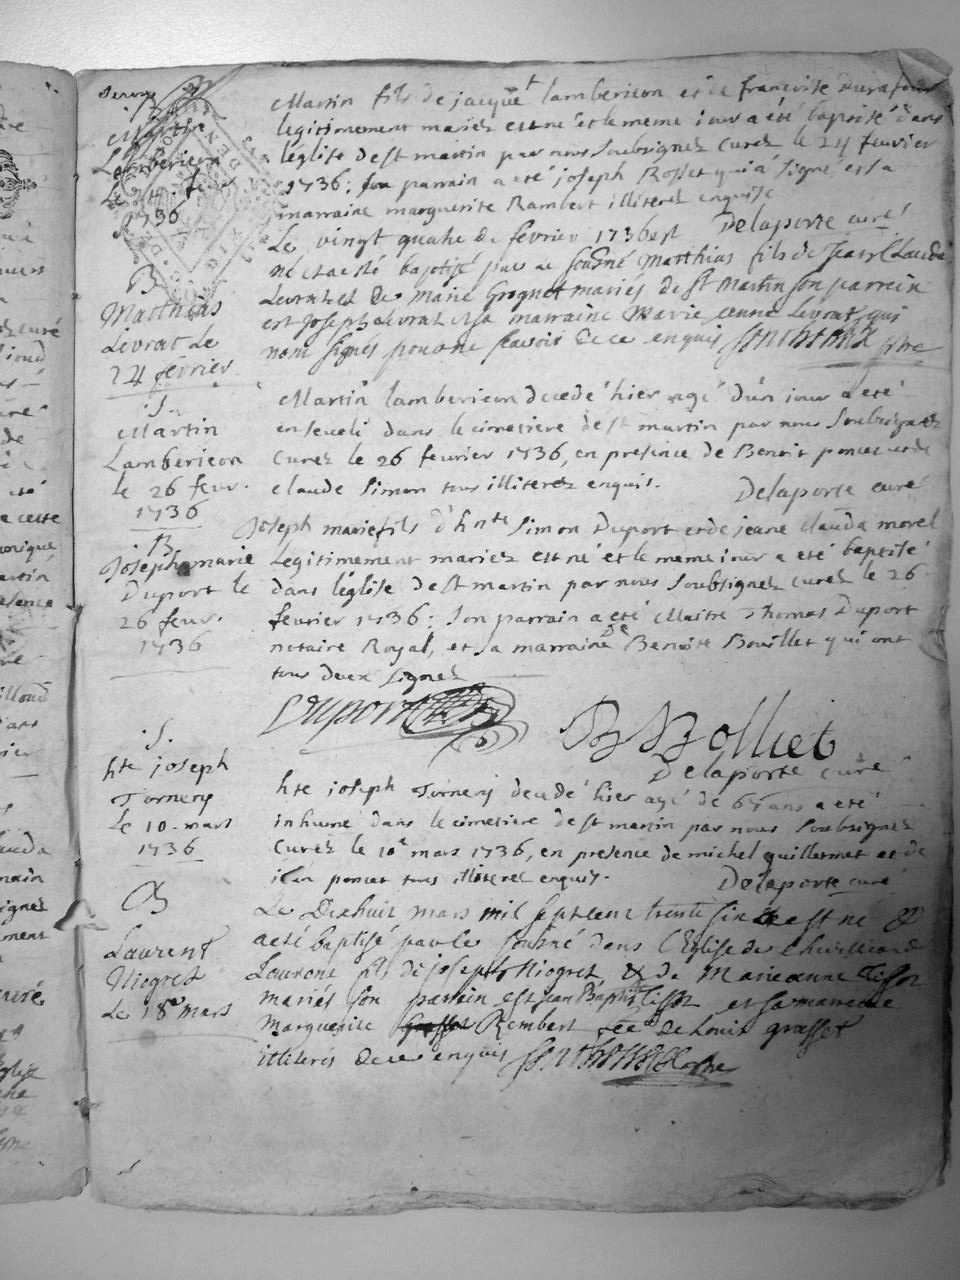 B
Martin
Lamberieon
1736
Martin fils de jacque lamberieon et de francoise
legitimement mariez est né et le meme iour a été baptisé dans
léglise de st martin par nous soubsignez curez le 24 fevrier
1736; son parrain a eté joseph Rosset qui a signé et sa
marraine marguerite Rambert illiterez enquise
Delaporte curé
B
Matthias
Levrat le
24 février
Le vingt quatre de fevrier 1736 est
né et a esté baptisé par le sousné Matthias fils de Jean Claude
Levrat et de Marie Grognet mariés de St Martin son parrein
est Joseph Levrat et sa marraine Marie jeanne Levrat qui
nont signés pour ne scavoir de ce enquis
.S.
Martin
Lamberieon
le 26 fevr.
1736
Martin lamberieon decedé hier agé d'un iour a eté
enseveli dans le cimetiere de st martin par nous soubsignez
curez le 26 fevrier 1736, en presence de Benoit poncet et de
claude Simon tous illiterez enquis.
Delaporte curé
B
Joseph marie
Duport le
26 fevr.
1736
Joseph marie fils d'hnte Simon Duport et de jeane clauda morel
legitimement mariez est né et le meme iour a eté baptisé
dans léglise de st martin par nous soubsignez curez le 26
fevrier 1736; son parrain a eté Maitre Thomas Duport
notaire Royal, et sa marraine De Benoite Bouillet qui ont
tous deux signez
Duport
B Bolliet
Delaporte curé
.S.
hte joseph
Tornery
Le 10 mars
1736
hte joseph Tornery decedé hier agé de 65 ans a eté
inhumé dans le cimetiere de st martin par nous soubsignez
curez le 10e mars 1736, en presence de michel guillermet et de
jean poncet tous illiterez enquis.
Delaporte curé
B
Laurent
Niogret
Le 18e mars
Le Dixhuit mars mil sept cent trente six est né &
a eté baptisé par le sousné dans l'Eglise de
Laurent fils de joseph Niogret & de Marie anne Tissot
mariés son parrein est jean Baptiste Tissot et sa marreine
Marguerite Rembert fee de Louis grasset
illiterés de ce enquis